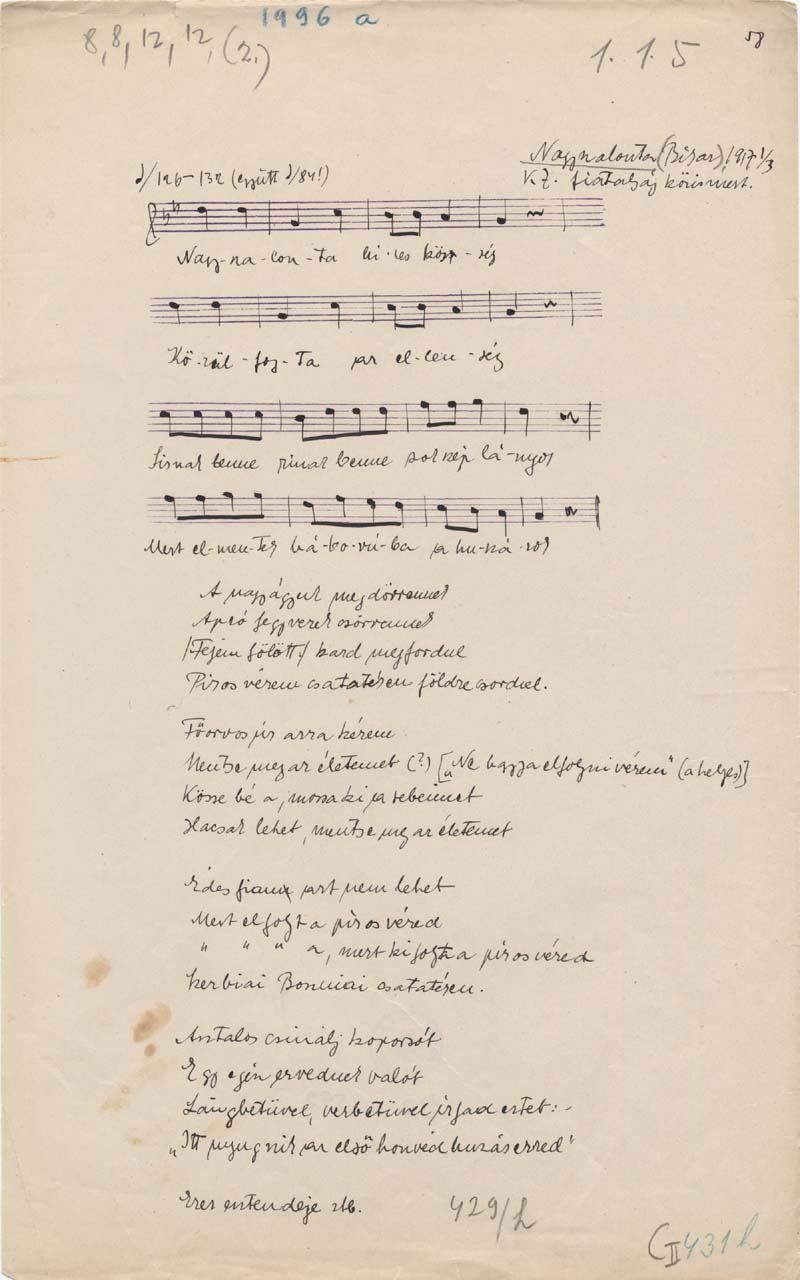 1996 a
8, 8, 12, 12, (2.)
1. 1. 5
58
Nagyszalonta (Bihar) 1917 1/3
K Z. fiatalság közismert.
♩/126-132 (együtt ♩/84!)
Nagy-sza-lon-ta hi-res köz-ség
Kö-rül-fog-ta az el-len-ség
Sirnak benne rinak benne sok szép lá-nyok
Mert el-men-tek há-bo-rú-ba a hu-szá-rok
A nagyágyuk megdörrennek
Apró fegyverek csörrennek
/:Fejem fölött:/ kard megfordul
Piros vérem csatatéren földre csordul.
Főorvos úr arra kérem
Mentse meg az életemet (?) [„Ne hagyja elfolyni vérem" (a helyes)]
Kösse bé a, mossa ki a sebeimet
Hacsak lehet, mentse meg az életemet
Édes fiam azt nem lehet
Mert elfolyt a piros véred
" " " a, mert kifolyt a piros véred
Szerbiai Boszniai csatatéren.
Asztalos csinálj koporsót
Egy egész ezrednek valót
Lángbetüvel, vérbetüvel irjad eztet: -
„Itt nyugszik az első honvéd huszárezred"
Ezer esztendeje stb.
429/h
C II 431 h